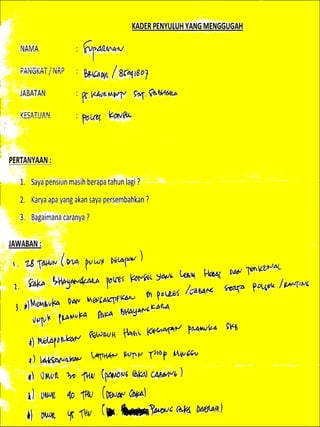 KADER PENYULUH YANG MENGGUGAH
NAMA : Suparman
PANGKAT / NRP : BRIGADIR / 85091807
JABATAN : PS KAURMINTU SAT. SABHARA
KESATUAN : POLRES KONSEL
PERTANYAAN :
1. Saya pensiun masih berapa tahun lagi ?
2. Karya apa yang akan saya persembahkan ?
3. Bagaimana caranya ?
JAWABAN :
1. 28 TAHUN (DUA PULUH DELAPAN)
2. SAKA BHAYANGKARA POLRES KONSEL YANG LEBIH HEBAT DAN TERKENAL
3. *) MEMBUKA DAN MENGAKTIFKAN DI POLRES / CABANG SERTA POLSEK / RANTING
UNTUK PRAMUKA SAKA BHAYANGKARA
*) MELAPORKAN SELURUH HASIL KEGIATAN PRAMUKA SKB
*) LAKSANAKAN LATIHAN RUTIN TIAP MINGGU
*) UMUR 30 THN (PAMONG SAKA CABANG)
*) UMUR 40 THN (DEWAN SAKA)
*) UMUR 45 THN (PAMONG SAKA DAERAH)